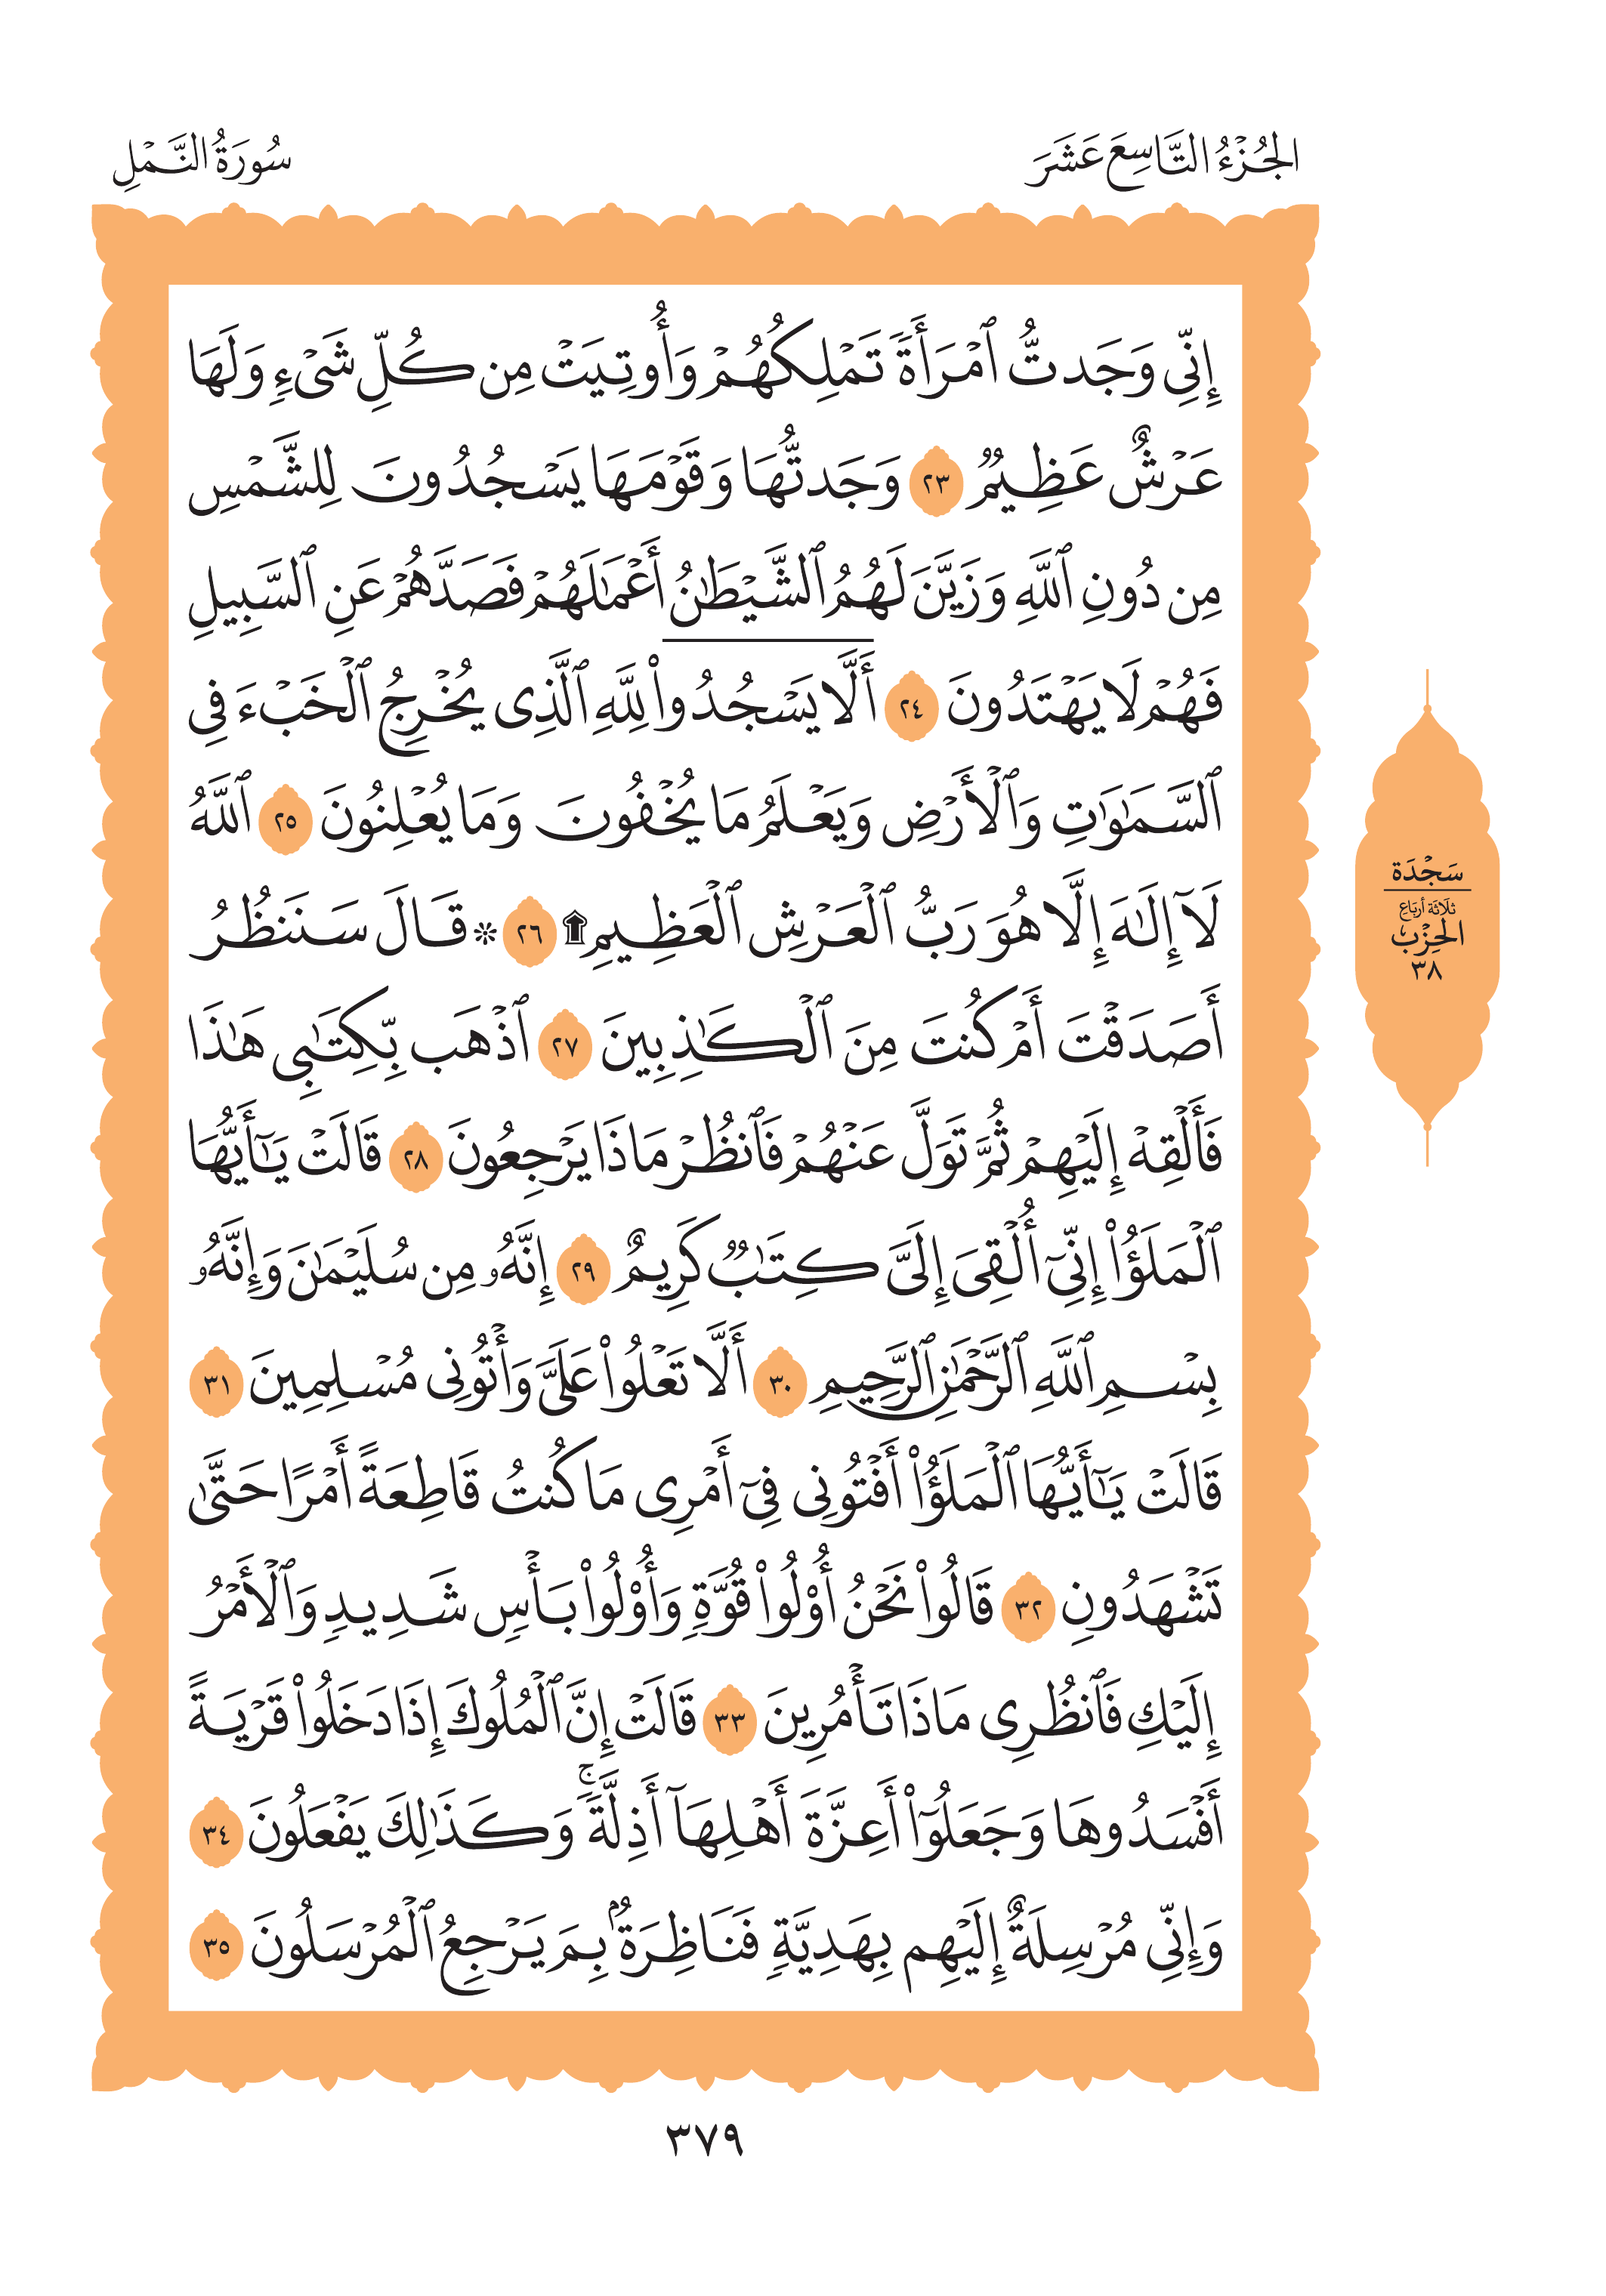 الجُزْءُ التَّاسِعَ عَشَرَ
سُورَةُ النَّمْلِ
إِنِّي وَجَدتُّ ٱمْرَأَةً تَمْلِكُهُمْ وَأُوتِيَتْ مِن كُلِّ شَىْءٍ وَلَهَا
عَرْشٌ عَظِيمٌ ٢٣ وَجَدتُّهَا وَقَوْمَهَا يَسْجُدُونَ لِلشَّمْسِ
مِن دُونِ ٱللَّهِ وَزَيَّنَ لَهُمُ ٱلشَّيْطَٰنُ أَعْمَٰلَهُمْ فَصَدَّهُمْ عَنِ ٱلسَّبِيلِ
فَهُمْ لَا يَهْتَدُونَ ٢٤ أَلَّا يَسْجُدُوا۟ لِلَّهِ ٱلَّذِى يُخْرِجُ ٱلْخَبْءَ فِى
ٱلسَّمَٰوَٰتِ وَٱلْأَرْضِ وَيَعْلَمُ مَا يُخْفُونَ وَمَا يُعْلِنُونَ ٢٥ ٱللَّهُ
لَآ إِلَٰهَ إِلَّا هُوَ رَبُّ ٱلْعَرْشِ ٱلْعَظِيمِ ۩ ٢٦ ۞ قَالَ سَنَنظُرُ
أَصَدَقْتَ أَمْ كُنتَ مِنَ ٱلْكَٰذِبِينَ ٢٧ ٱذْهَب بِّكِتَٰبِى هَٰذَا
فَأَلْقِهْ إِلَيْهِمْ ثُمَّ تَوَلَّ عَنْهُمْ فَٱنظُرْ مَاذَا يَرْجِعُونَ ٢٨ قَالَتْ يَٰٓأَيُّهَا
ٱلْمَلَؤُا۟ إِنِّىٓ أُلْقِىَ إِلَىَّ كِتَٰبٌ كَرِيمٌ ٢٩ إِنَّهُۥ مِن سُلَيْمَٰنَ وَإِنَّهُۥ
بِسْمِ ٱللَّهِ ٱلرَّحْمَٰنِ ٱلرَّحِيمِ ٣٠ أَلَّا تَعْلُوا۟ عَلَىَّ وَأْتُونِى مُسْلِمِينَ ٣١
قَالَتْ يَٰٓأَيُّهَا ٱلْمَلَؤُا۟ أَفْتُونِى فِىٓ أَمْرِى مَا كُنتُ قَاطِعَةً أَمْرًا حَتَّىٰ
تَشْهَدُونِ ٣٢ قَالُوا۟ نَحْنُ أُو۟لُوا۟ قُوَّةٍ وَأُو۟لُوا۟ بَأْسٍ شَدِيدٍ وَٱلْأَمْرُ
إِلَيْكِ فَٱنظُرِى مَاذَا تَأْمُرِينَ ٣٣ قَالَتْ إِنَّ ٱلْمُلُوكَ إِذَا دَخَلُوا۟ قَرْيَةً
أَفْسَدُوهَا وَجَعَلُوٓا۟ أَعِزَّةَ أَهْلِهَآ أَذِلَّةً ۚ وَكَذَٰلِكَ يَفْعَلُونَ ٣٤
وَإِنِّى مُرْسِلَةٌ إِلَيْهِم بِهَدِيَّةٍ فَنَاظِرَةٌۢ بِمَ يَرْجِعُ ٱلْمُرْسَلُونَ ٣٥
سَجْدَة
ثلاثة أرباع
الحِزْب
٣٨
٣٧٩